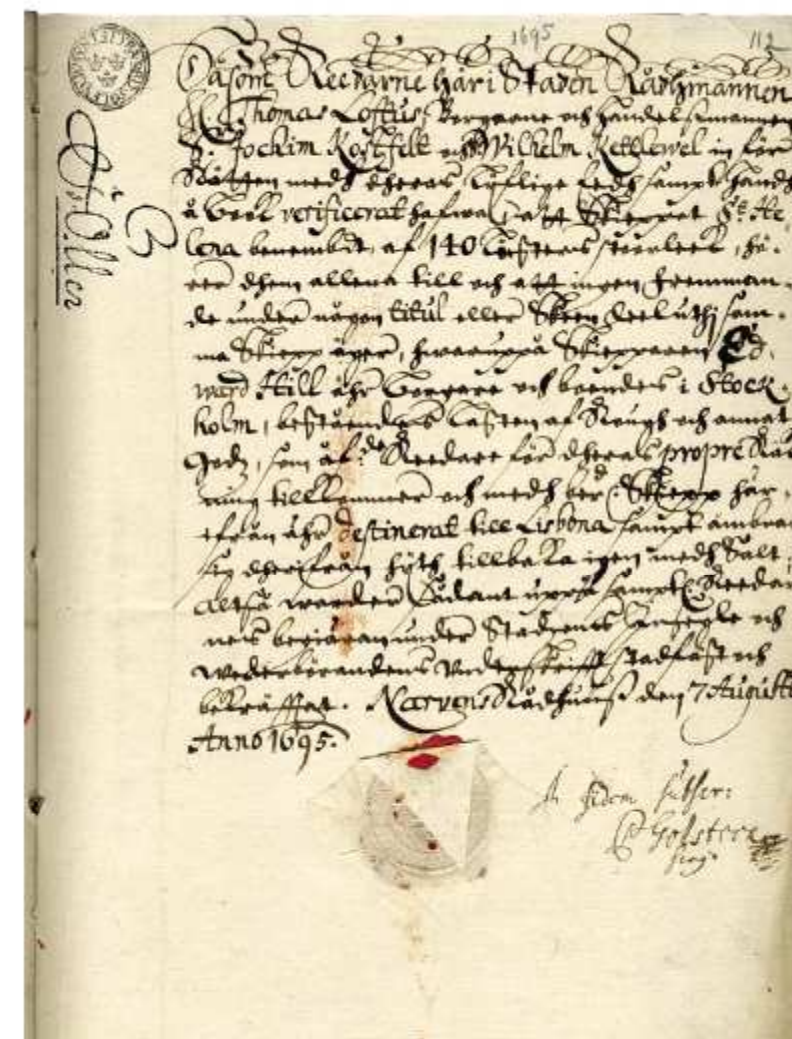 1695
112
Såsom Reedarne här i Staden Rådhmannen
H. Thomas Loftus, Borgaren och handelsmannen
H. Jochim Rostfelt och Wilhelm Kettlewel in för
Rätten medh dheras lyflige Eedh sampt handh
å Book verificerat hafwa, att Skieppet St. He-
lena benembdt, af 140 Lästers storleek, hö-
rer dhem allena till och att ingen fremman-
de under någon titul eller Skeen deel uthi sam-
ma Skiepp äger, hwaruppå Skepparen Ed-
ward Hill ähr Borgare och boendes i Stock-
holm, bestående Lasten af Rough och annat
Godz, som af Reedare för dheras propre Räk-
ning tillkommer och medh ber:d Skiepp här-
ifrån ähr destinerat till Lisbona sampt ämbnat
dherifrån hijth tillbaka igen medh Salt,
altså warder Sådant uppå sampt: Reedar-
nes begiäran under Stadzens Insegle och
wederbörandens Underskrifft stadfäst och
bekräfftat. Narvens Rådhuus den 7 Augusti
Anno 1695.
Ad fidem